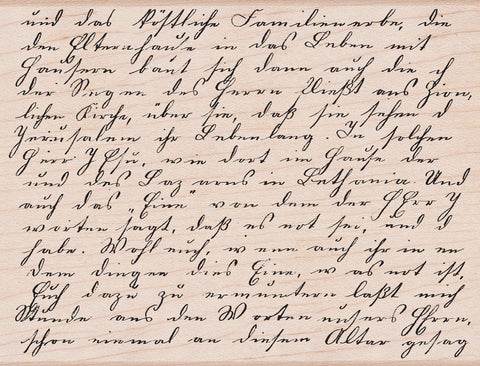 und das köstliche Familienerbe, die
den Elternhause in das Leben mit
Häusern baut sich dann auch die
der Segen des Herrn fließt aus Zion,
lichen Kirche, über sie, daß sie sehen d
Jerusalem ihr Lebenlang. In solchen
Herr JEsu, wie dort im Hause der
und des Lazarus in Bethania Und
auch das „Eine" von dem der HErr J
worten sagt, daß es not sei, und d
habe. Wohl euch, wenn auch ihr in en
dem dingen dies Eine, was not ist,
Euch dazu zu ermuntern laßt mich
Stunde aus den Worten unsers HErrn,
schon einmal an diesem Altar gesag